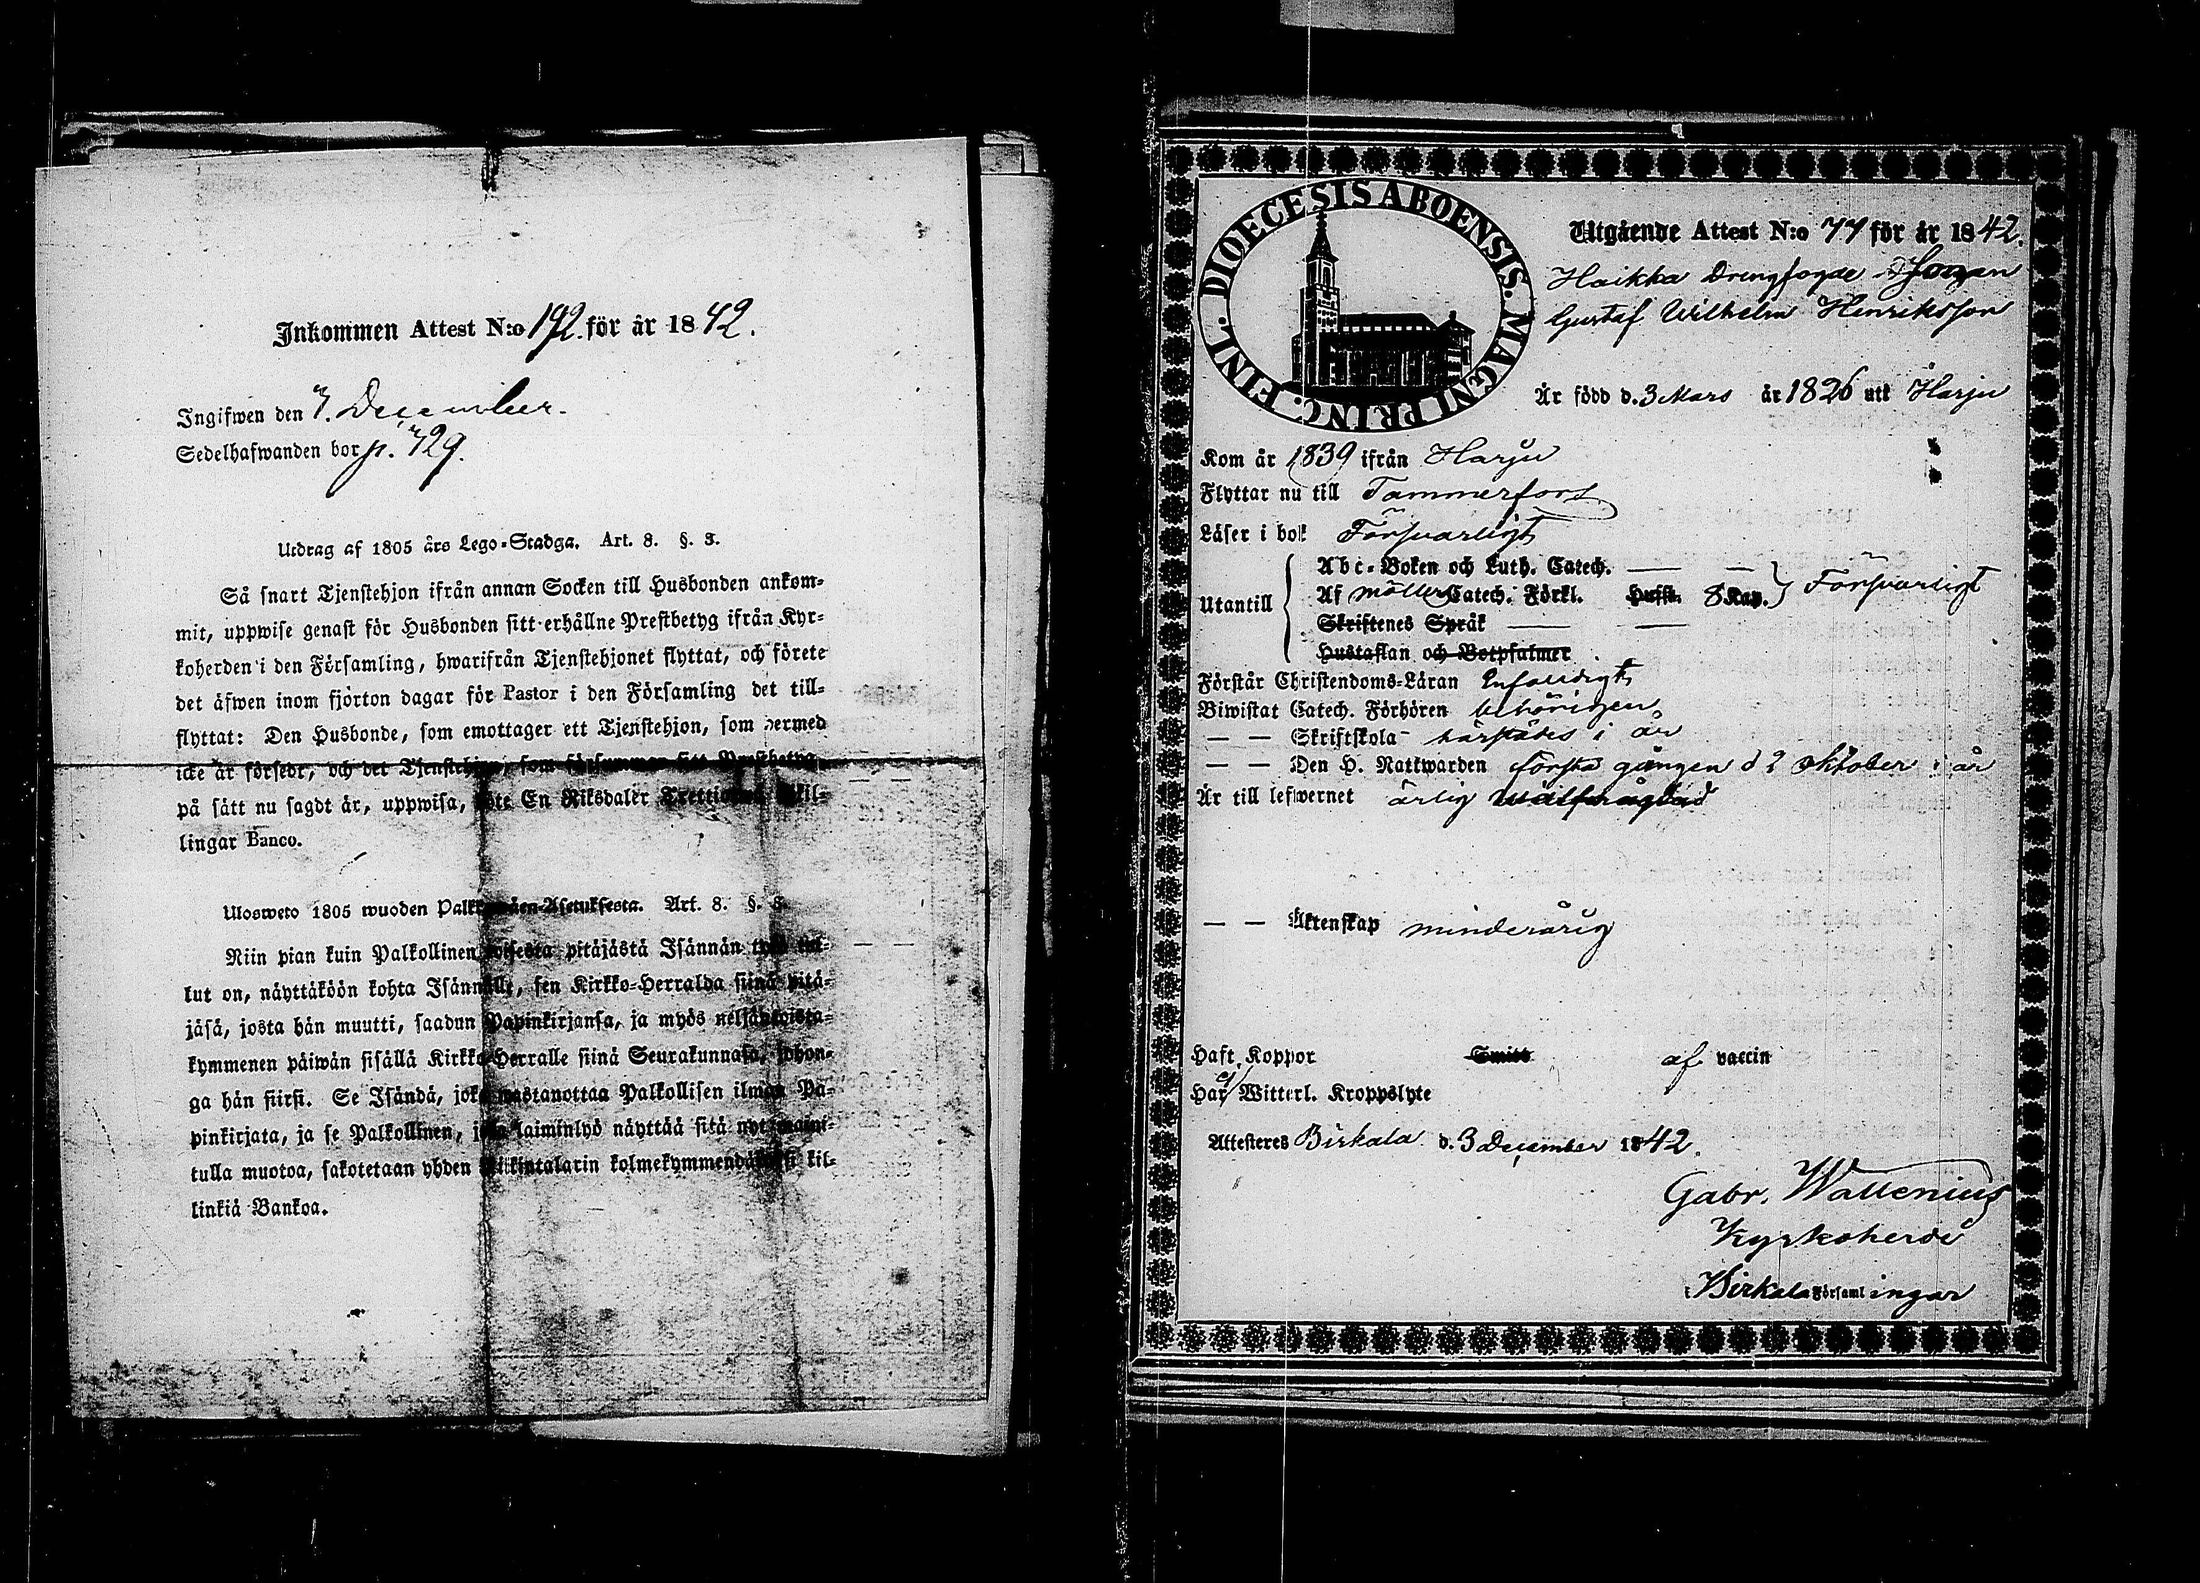 Inkommen Attest N:o 192. för år 1842.
Ingifwen den 7. December.
Sedelhafwanden bor p. 729.
Utdrag af 1805 års Lego-Stadga. Art. 8. §. 3.
Så snart Tjenstehjon ifrån annan Socken till Husbonden ankom-
mit, uppwise genast för Husbonden sitt erhållne Prestbetyg ifrån Kyr-
koherden i den Församling, hwarifrån Tjenstehjonet flyttat, och förete
det äfwen inom fjorton dagar för Pastor i den Församling det till-
flyttat: Den Husbonde, som emottager ett Tjenstehjon, som hermed
icke är försedt, och det Tjenstehjon, som försummar sitt Prestbetyg
på sätt nu sagdt är, uppwisa, böte En Riksdaler Trettio Skil-
lingar Banco.
Ulosweto 1805 wuoden Palkkawäen-Asetuksesta. Art. 8. §. 3.
Niin pian kuin Palkollinen toisesta pitäjästä Isännän tul-
lut on, näyttäköön kohta Isännälle, sen Kirkko-Herralda siinä pitä-
jäsä, josta hän muutti, saadun Papinkirjansa, ja myös neljäntoista-
kymmenen päiwän sisällä Kirkko-Herralle siinä Seurakunnasa, johon-
ga hän siirsi. Se Isändä, joka wastanottaa Palkollisen ilman Pa-
pinkirjata, ja se Palkollinen, joka laiminlyö näyttää sitä nyt maini-
tulla muotoa, sakotetaan yhden Riikintalarin kolmekymmendä kil-
linkiä Bankoa.
DIOECESIS ABOENSIS. MAGNI PRINC. FINL.
Utgående Attest N:o 77 för år 1842.
Haikka Drengfogde Johan
Gustaf Wilhelm Henriksson
Är född d. 3 Mars år 1826 uti Harju
Kom år 1839 ifrån Harju
Flyttar nu till Tammerfors
Läser i bok Försvarligt
Utantill
Abc-Boken och Luth. Catech. — —
Af Möllers Catech. Förkl. Hufst. 8 Kap. Försvarligt
Skriftenes Språk — —
Hustaflan och Botpsalmer
Förstår Christendoms-Läran Enfaldigt
Biwistat Catech. Förhören behörigen
— — Skriftskola härstädes i år
— — Den H. Nattwarden första gången d 2 Oktober i år
Är till lefwernet ärlig wälfrägdad
— — Äktenskap minderårig
Haft Koppor Smitt af vaccin
Har ej Witterl. Kroppslyte
Attesteres Birkala d. 3 December 1842.
Gabr. Wallenius
Kyrkoherde
i Birkala Församlingar